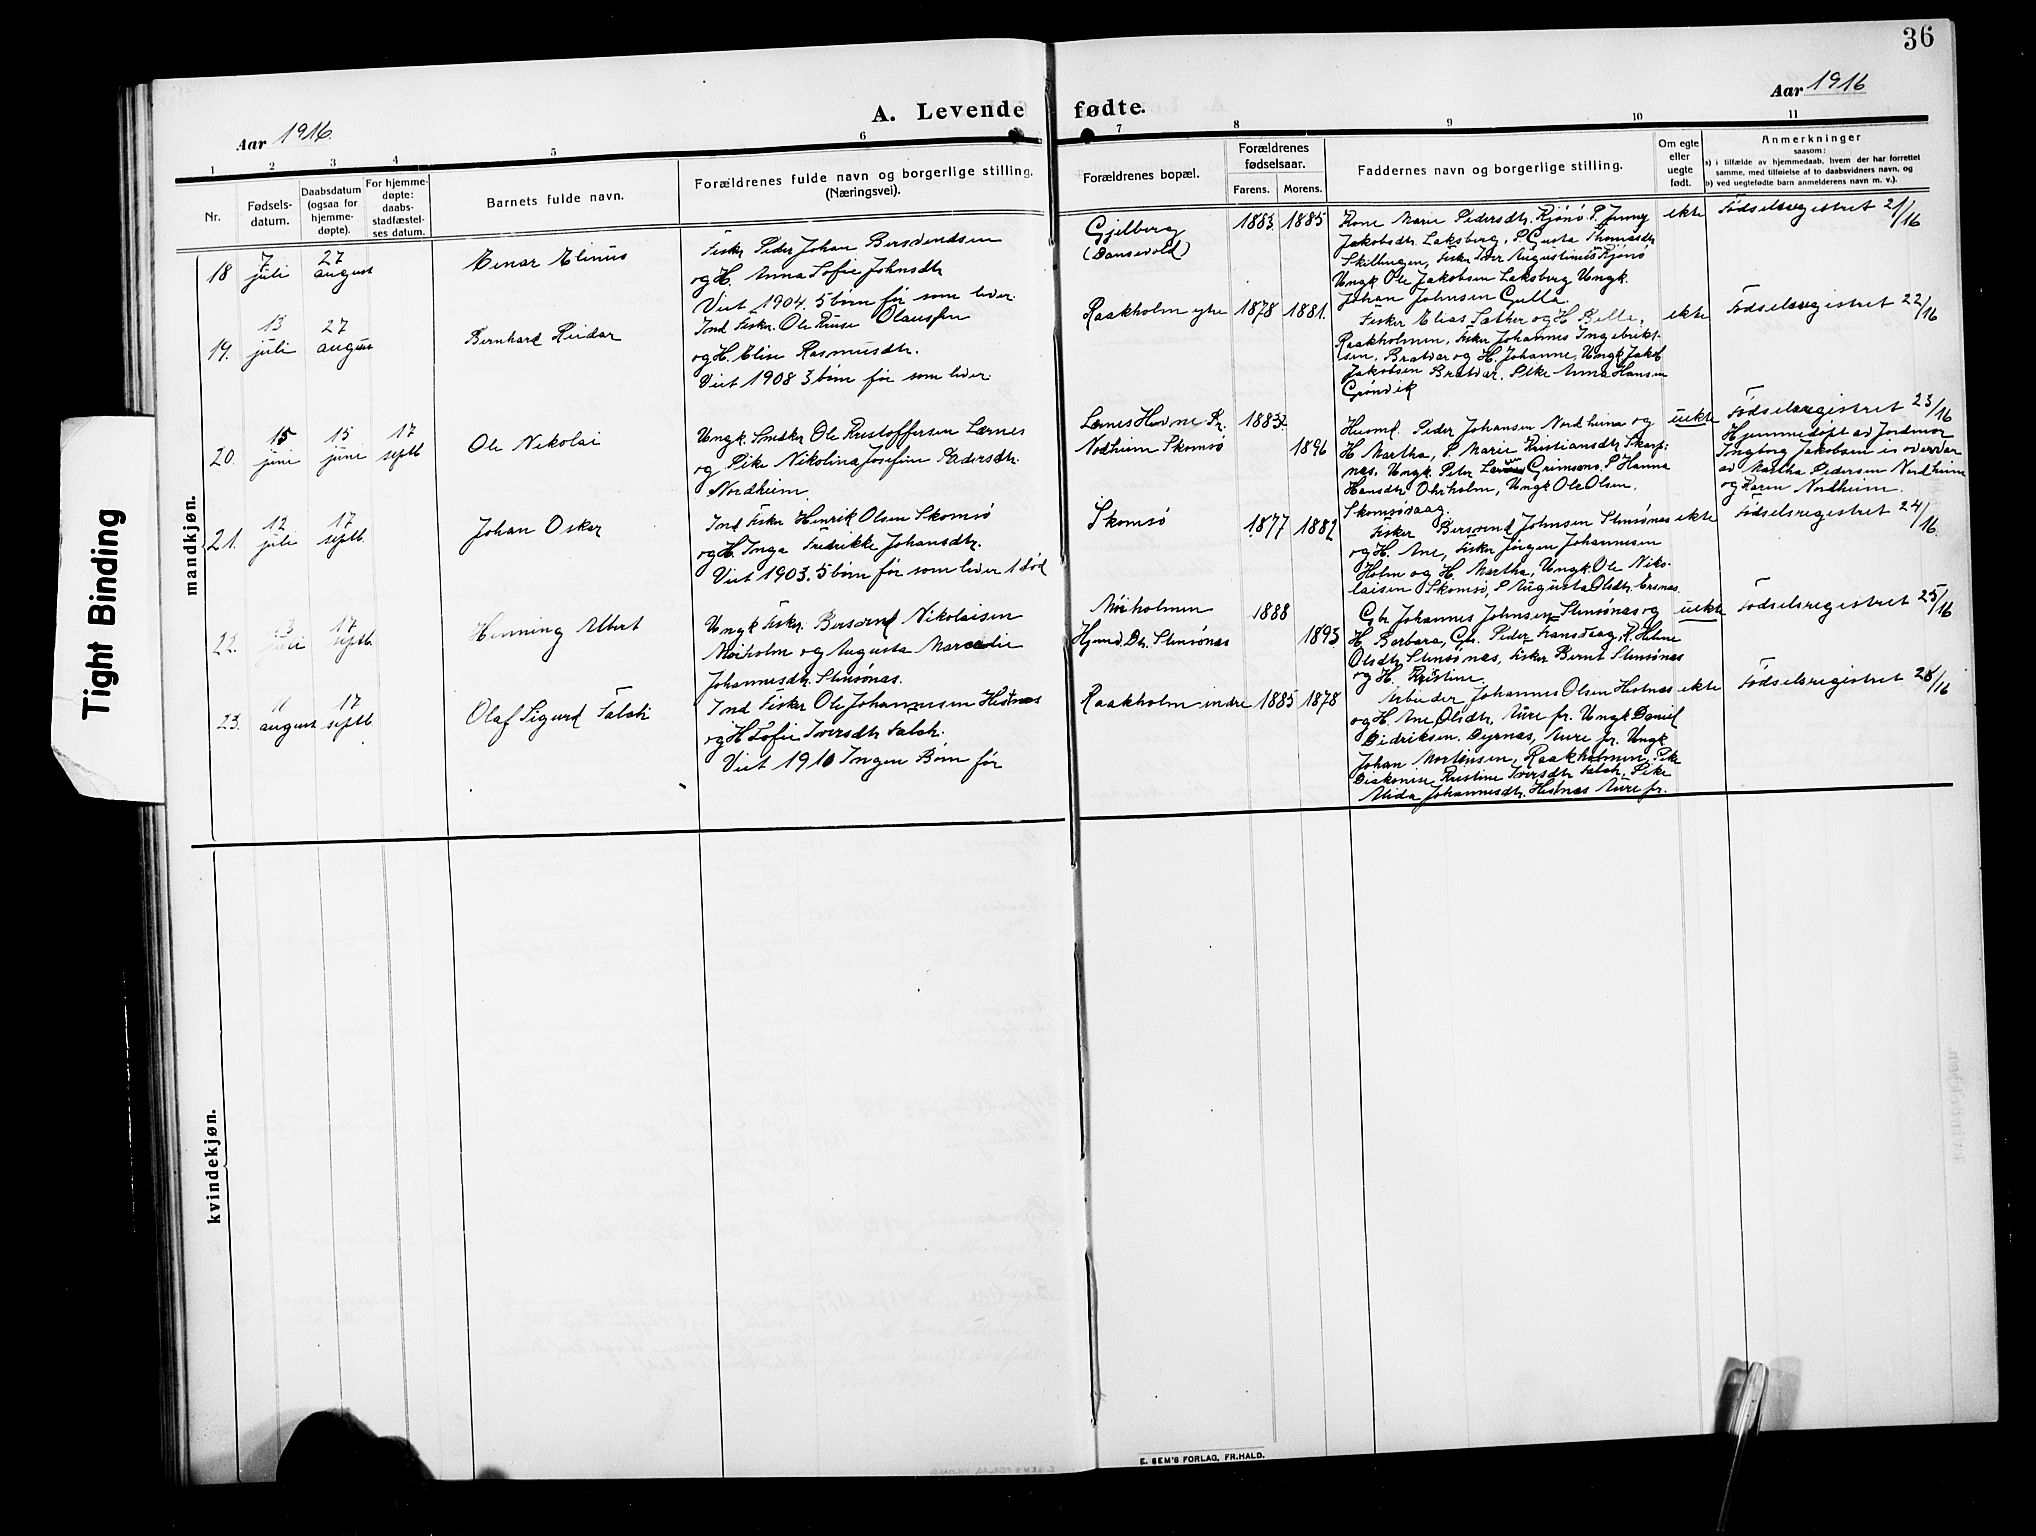 36
Aar 1916.
A. Levende fødte.
Aar 1916
1 2 3 4 5 6 7 8 9 10 11
Nr.
Fødsels-
datum.
Daabsdatum
(ogsaa for
hjemme-
døpte).
For hjemme-
døpte:
daabs-
stadfæstel-
ses datum.
Barnets fulde navn.
Forældrenes fulde navn og borgerlige stilling.
(Næringsvei).
Forældrenes bopæl.
Forældrenes
fødselsaar.
Farens. Morens.
Faddernes navn og borgerlige stilling.
Om egte
eller
uegte
født.
Anmerkninger
saasom:
a) i tilfælde av hjemmedaab, hvem der har forrettet
samme, med tilføielse af to daabsvidners navn, og
b) ved uegtefødte barn anmelderens navn m. v.).
mandkjøn.
18
7
juli
27
august
Einar Elinus
Fisker Peder Johan Bersvendsen
og H. Anna Sofie Johnsdtr
Viet 1904. 5 børn før som lever.
Gjelberg
(Dansevold)
1883. 1885
Kone Marie Pedersdtr. Kjönö P. Jenny
Jakobsdtr Laksberg, P. Gusta Thomasdtr
Skillingen, Fisker Iver Augustinus Kjönö
Ungk Ole Jakobsen Laksberg Ungk.
Johan Johnsen Gulla.
ekte
Födselsregistret 21/16
19.
13
juli
27
august
Bernhard Reidar
Ind Fisker. Ole Olaussen
og H. Elise Rasmusdtr.
Viet 1908 3 børn før som lever.
Raakholm ytre
1878 1881.
Fisker Elias Sæther og H Belle,
Raakholmen, Fisker Johannes Ingebrikt-
sen, Bratvær og H. Johanne, Ungk Jakob
Jakobsen Bratvær. Pike Anna Hansen
Grönvik
ekte
Födselsregistret 22/16
20.
15
juni
15
juni
17
septb
Ole Nikolai
Ungk. Ole Kristoffersen Lernes
og Pike Nikolina Josefine Pedersdtr.
Nordheim.
Lernes Hevne Pr.
Nordheim Skomsö
1883
1896
Husmd. Peder Johansen Nordheim og
H Martha, P Marie Kristiansdtr Skarp-
nes. Ungk. Peter Grimsens. P Hanna
Hansdtr Ohrholm, Ungk Ole Olsen,
Skomsövaag.
uekte
Födselsregistret 23/16
Hjemmedöpt av Jordmor
Ingborg Jakobsen i overvær
av Martha Pedersen Nordheim
og Karen Nordheim.
21.
12
juli
17
septb
Johan Oskar
Ind Fisker Henrik Olsen Skomsö
og H. Inga Fredrikke Johansdtr.
Viet 1903. 5 børn før som lever 1 död
Skomsö
1877 1882
Fisker Bersvend Johnsen Stinsönas
og H. Ane, Fisker Jörgen Johannesen
Holm og H. Martha, Ungk. Ole Niko-
laisen Skomsö, P Augusta Olsdtr Ersnas
ekte
Födselsregistret 24/16.
22.
13
17
septb
Henning Albert
Ungk Fisker. Bersvend Nikolaisen
Moiholm og Augusta
Johannesdtr. Stinsönas.
Moiholmen
Hjemd. Dtr. Stinsönas
1888
1893
Gbr Johannes Johnsen Stinsönas og
H Barbara, Gbr. Peder K. Helene
Olsdtr Stinsönas, Fisker Bernt Stinsönas
og H. Kristine.
uekte
Födselsregistret 25/16
23.
11
august
17
septb
Olaf Sigurd Falch
Ind Fisker Ole Johannesen Hestnes
og H Sofie Iversdtr Falch.
Viet 1910 Ingen Börn før
Raakholm indre
1885 1878
Arbeider Johannes Olsen Hestnas
og H. Ane Olsdtr, Aure pr. Ungk Daniel
Didriksen. Dyrnas, Aure pr. Ungk
Johan Mortensen, Raakholmen, Pike
Diakonise Kristine Iversdtr Falch, Pike
Alida Johannesdtr. Hestnas Aure pr.
ekte
Födselsregistret 28/16
kvindekjøn.
E. SEM'S FORLAG, FR.HALD.
Tight Binding